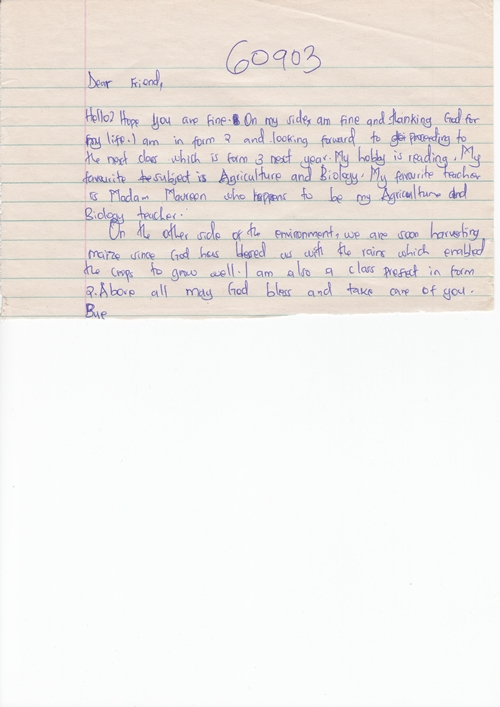 60903
Dear Friend,
Hello? Hope you are fine. On my sides am fine and thanking God for
my life. I am in form 2 and looking forward to proceeding to
the next class which is form 3 next year. My hobby is reading. My
favourite subject is Agriculture and Biology. My favourite teacher
is Madam Maureen who happens to be my Agriculture and
Biology teacher.
On the other side of the environment, we are soon harvesting
maize since God has blessed us with the rains which enabled
the crops to grow well. I am also a class prefect in form
2. Above all may God bless and take care of you.
Bye